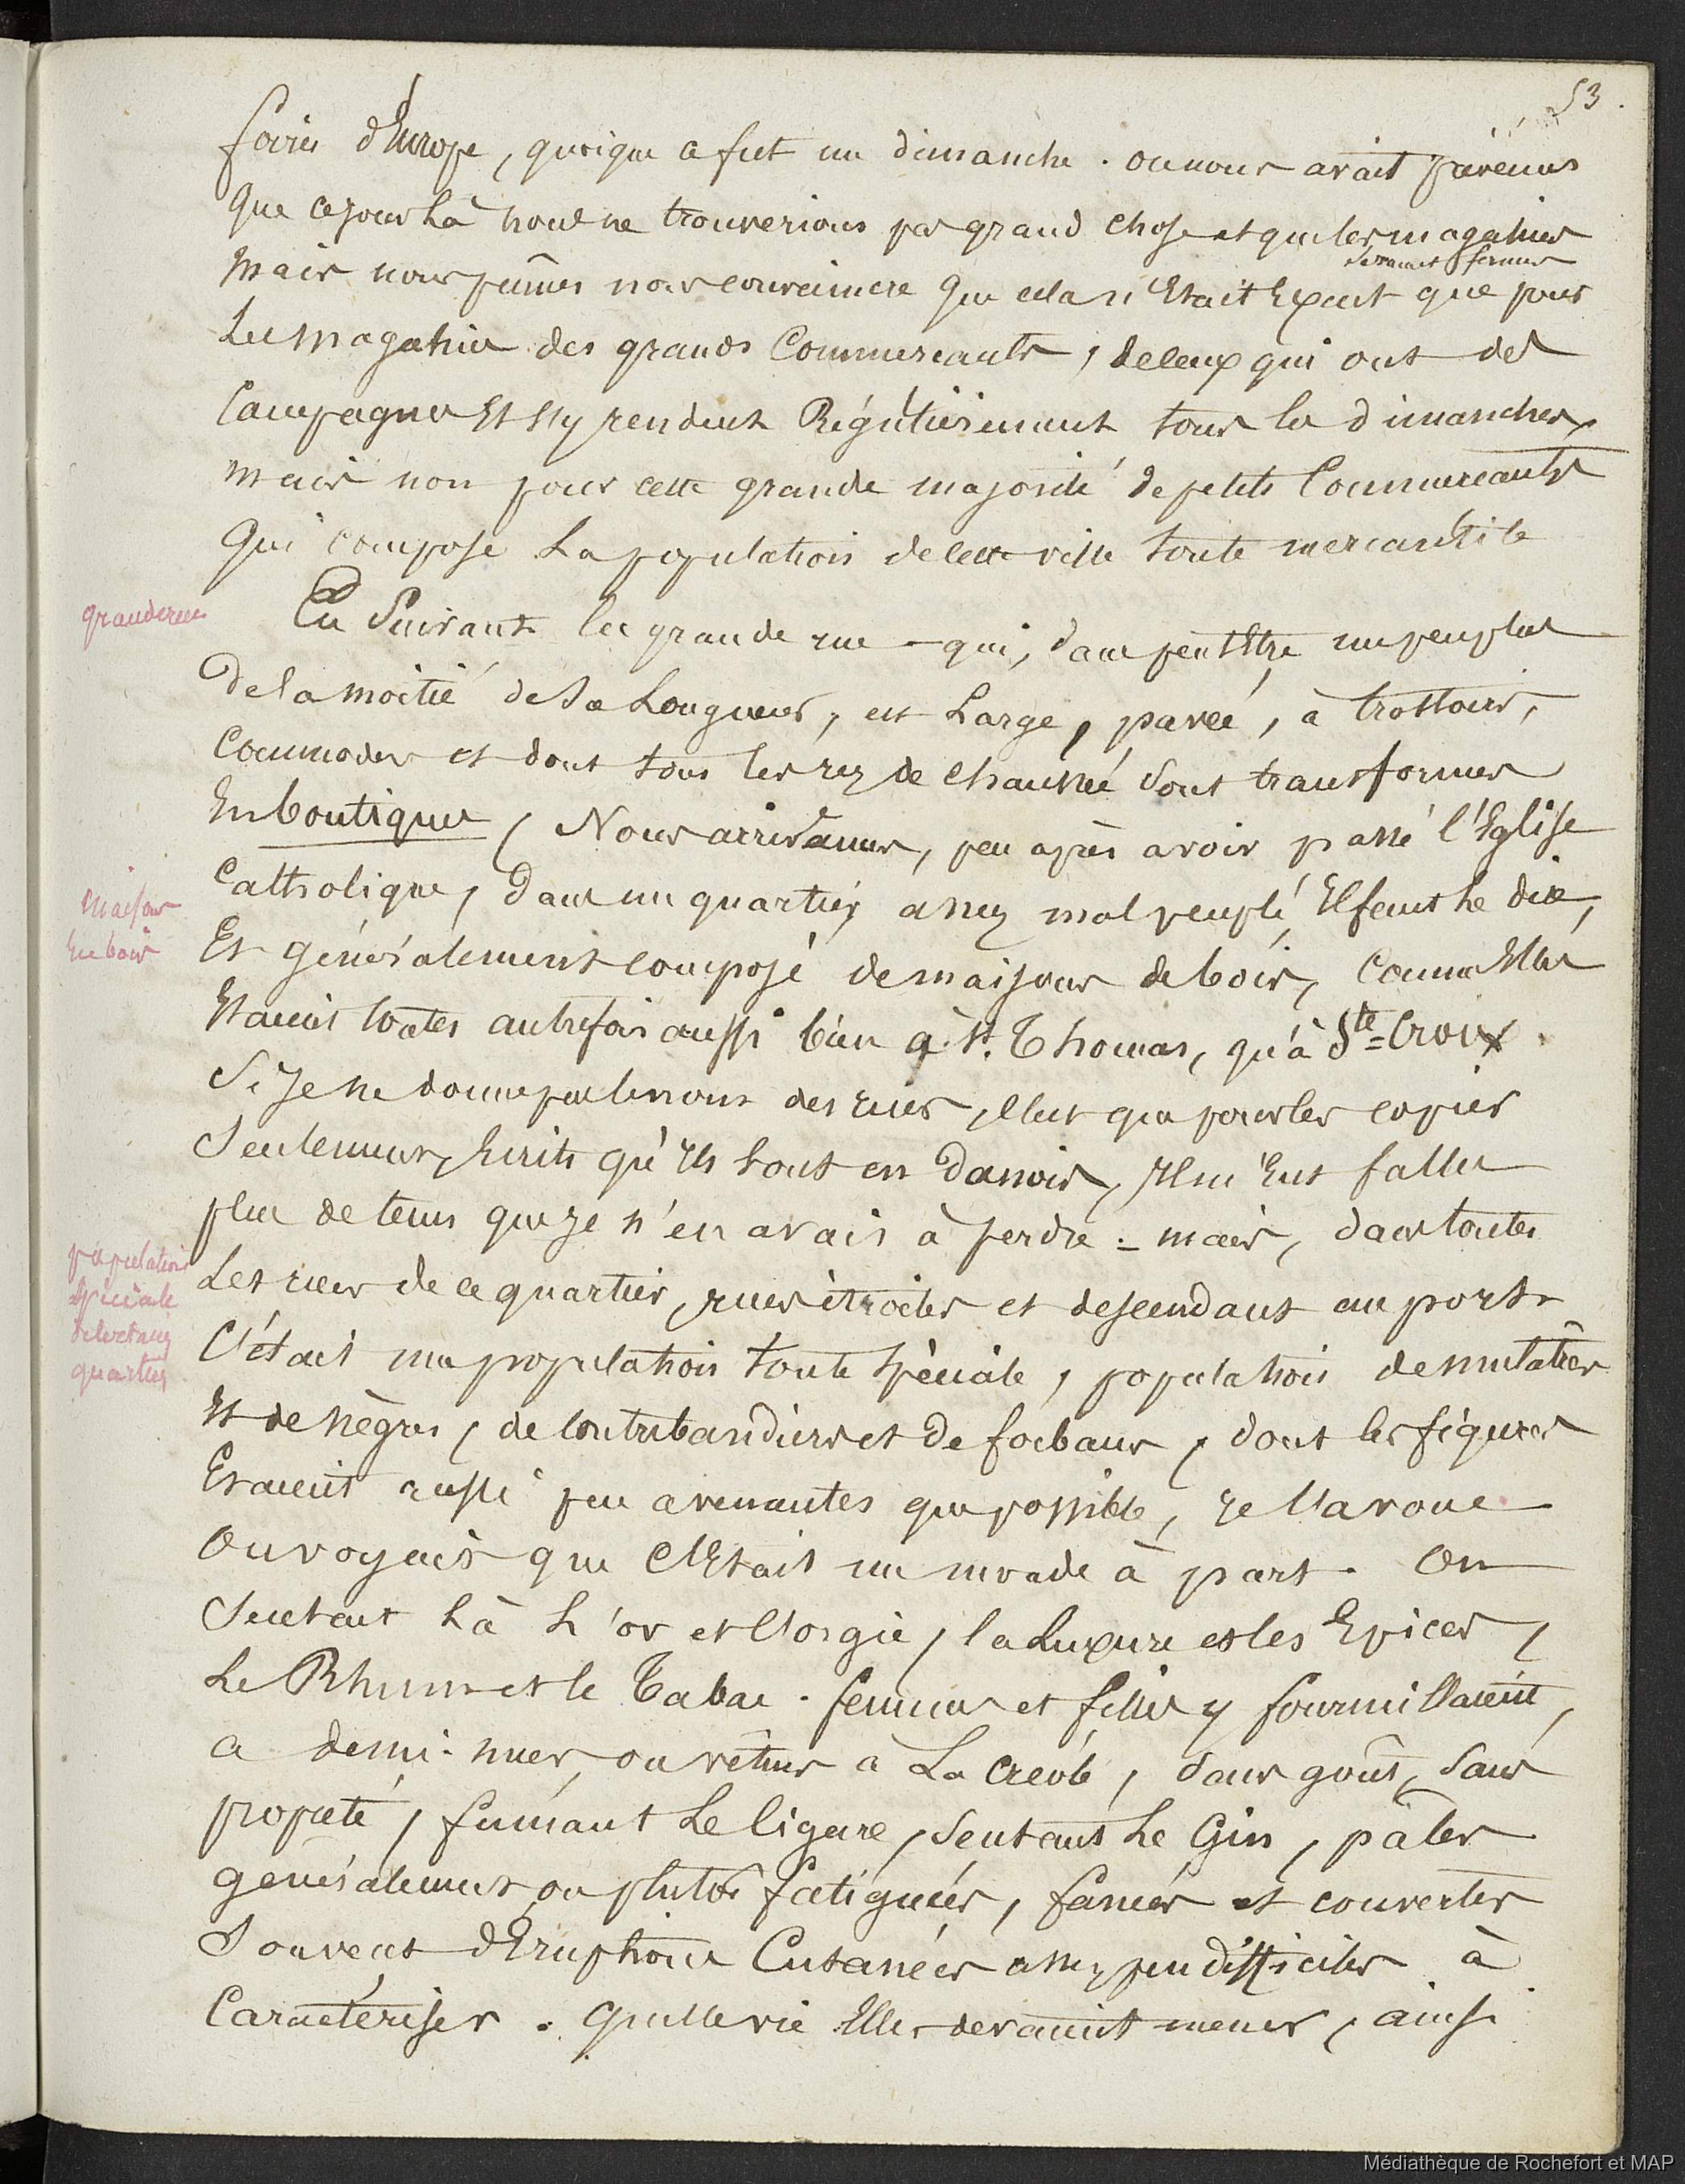 53.
foires d'Europe, quoique ce fut un dimanche. on nous avait prévenus
que ce jour là nous ne trouverions pas grand chose et que les magasins
seraient fermés
mais nous pûmes nous convaincre que cela n'était Exact que pour
Les magasins des grands Commercants, de ceux qui ont des
Campagnes Et s'y rendent Régulièrement tous les dimanches,
mais non pour cette grande majorité de petits Commercants
qui compose La population de cette ville toute mercantile
grande rue
En Suivant la grande rue - qui, dans peut Etre un peu plus
De la moitié de Sa Longueur, est Large, pavée, à trottoirs,
Commodes et dont tous les rez de chaussée sont transformés
En boutiques, Nous arrivâmes, peu après avoir passé l'Eglise
Catholique, dans un quartier assez mal peuplé, Il faut Le dire,
maisons
en bois
Et généralement composé de maisons de bois, Comme Elles
Etaient toutes autrefois aussi bien à St. Thomas, qu'à Ste=Croix.
Si Je ne donne pas les noms des rues, c'est que pour les copier
Seulement, Ecrits qu'Ils sont en Danois, Il m'Eut fallu
plus de tems que Je n'en avais à perdre = mais, dans toutes
population
spéciale
de certains
quartiers
Les rues de ce quartier, rues étroites et descendant au port
C'était une population toute spéciale, population de mulâtres
Et de nègres, de Contrebandiers et de forbans, dont les figures
Etaient aussi peu avenantes que possible, Je l'avoue
On voyait que c'Etait un monde à part. On
Sentait Là L'or et l'orgie, la Luxure et les Epices,
Le Rhum et le Tabac. femmes et filles y fourmillaient,
a demi-nues, ou vêtues à La créole, sans goût, sans
propreté, fumant Le Cigare, Sentant Le Gin, pâles
généralement ou plutôt fatiguées, fanées et couvertes
Souvent d'Eruptions Cutanées assez peu difficiles à
Caractériser. Quelle vie Elles devaient mener, ainsi
Médiathèque de Rochefort et MAP